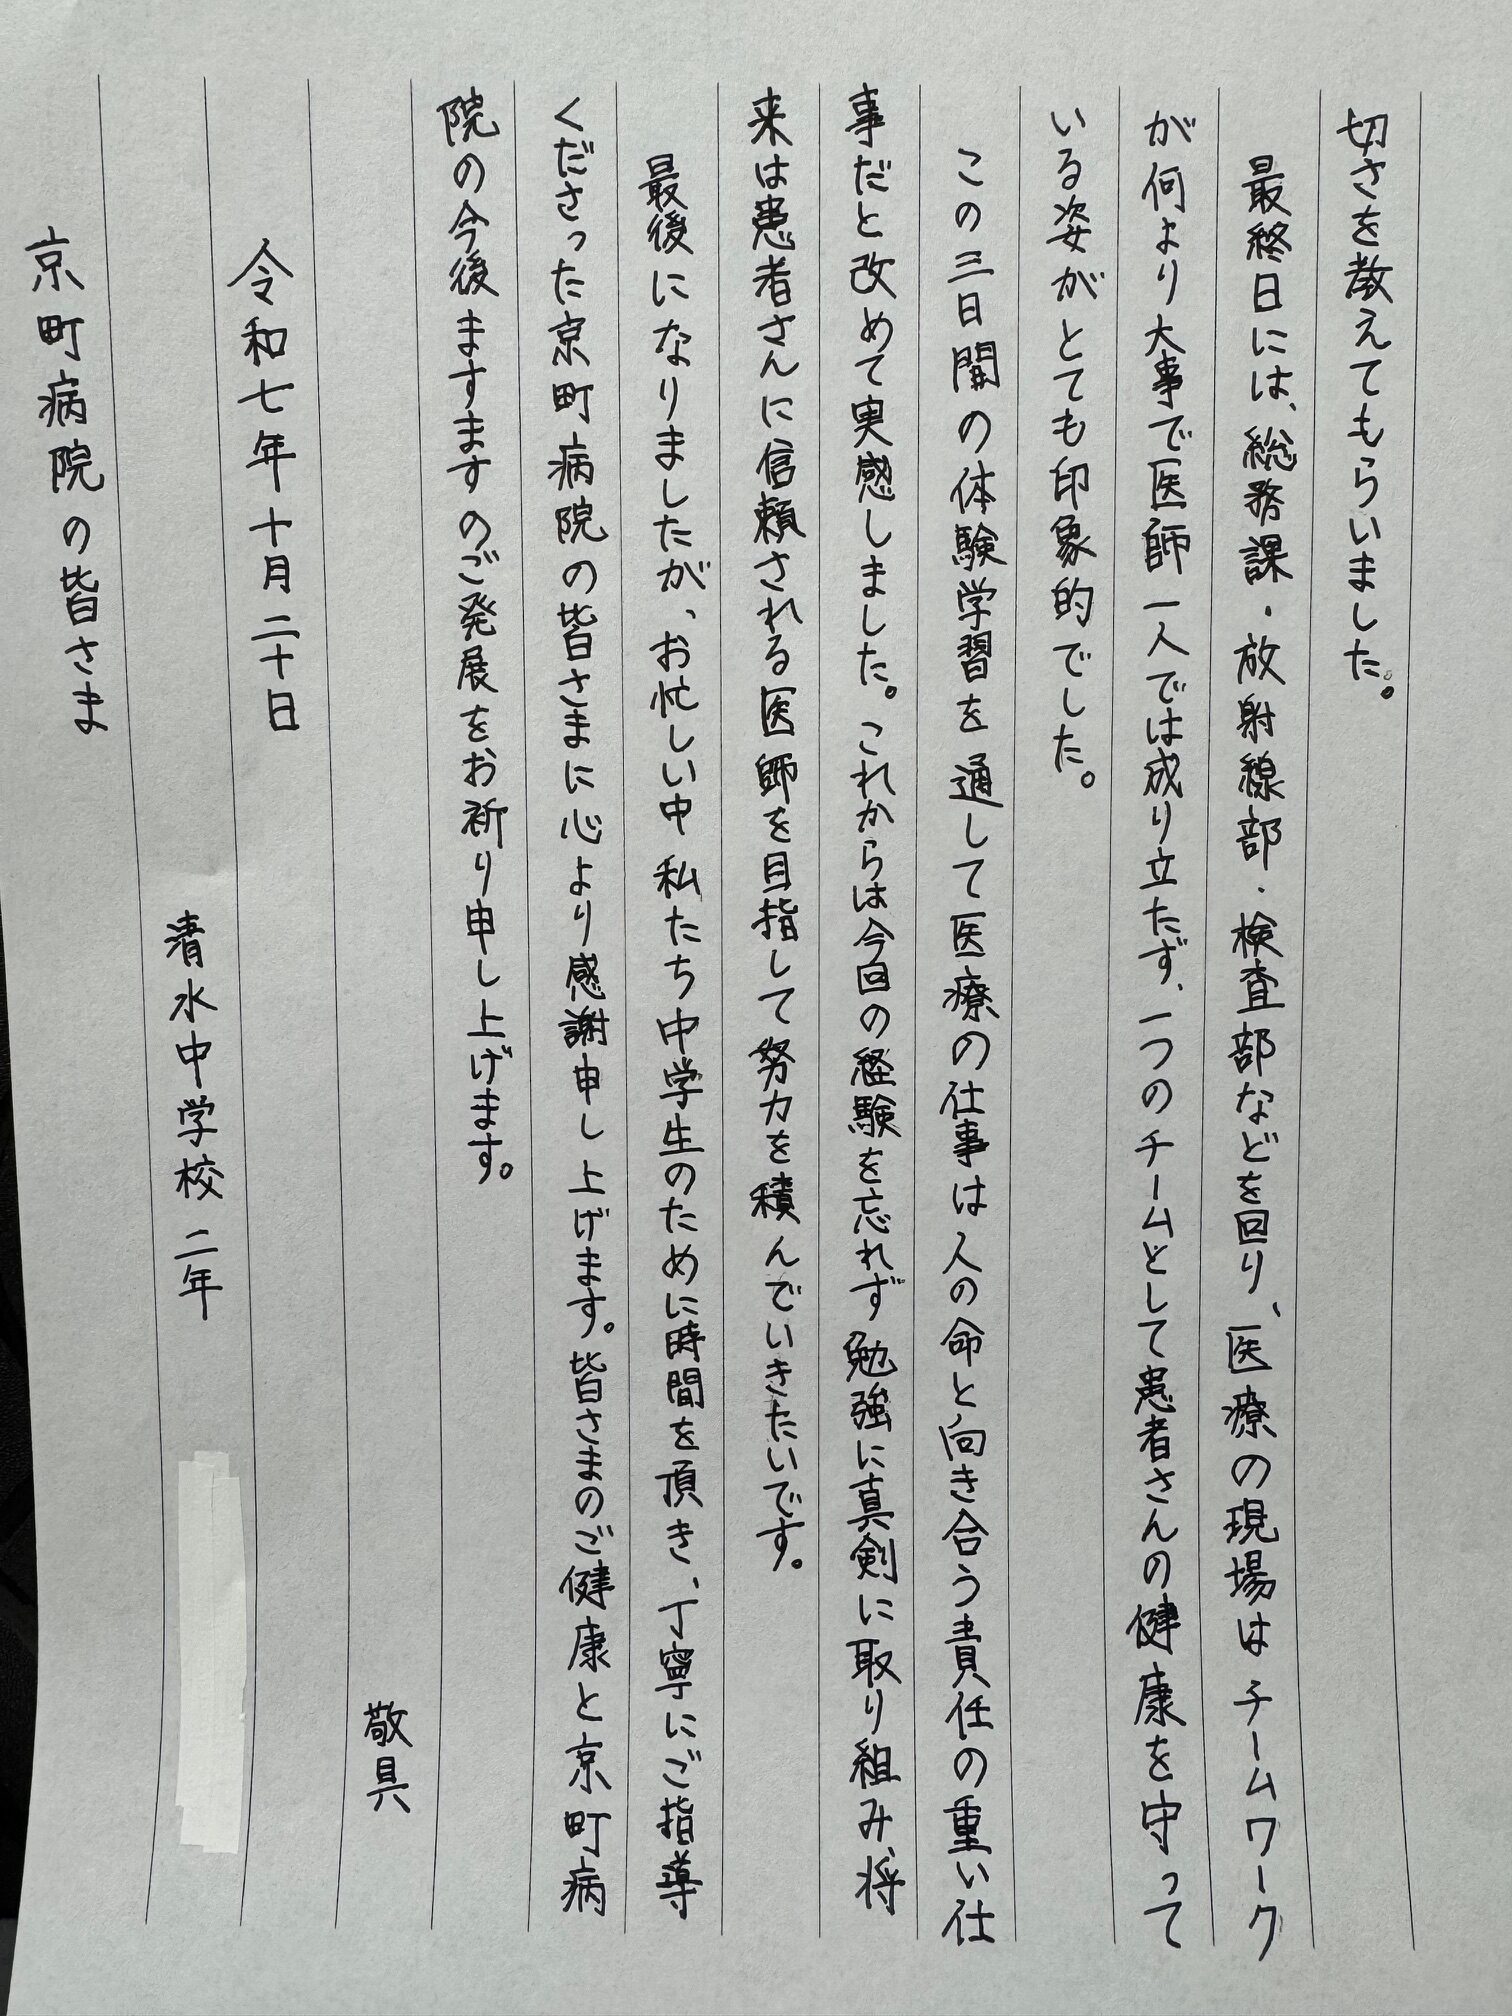 切さを教えてもらいました。
最終日には、総務課・放射線部・検査部などを回り、医療の現場はチームワーク
が何より大事で医師一人では成り立たず、一つのチームとして患者さんの健康を守って
いる姿がとても印象的でした。
この三日間の体験学習を通して医療の仕事は人の命と向き合う責任の重い仕
事だと改めて実感しました。これからは今回の経験を忘れず勉強に真剣に取り組み、将
来は患者さんに信頼される医師を目指して努力を積んでいきたいです。
最後になりましたが、お忙しい中私たち中学生のために時間を頂き、丁寧にご指導
くださった京町病院の皆さまに心より感謝申し上げます。皆さまのご健康と京町病
院の今後ますますのご発展をお祈り申し上げます。
敬具
令和七年十月二十日
清水中学校二年
京町病院の皆さま